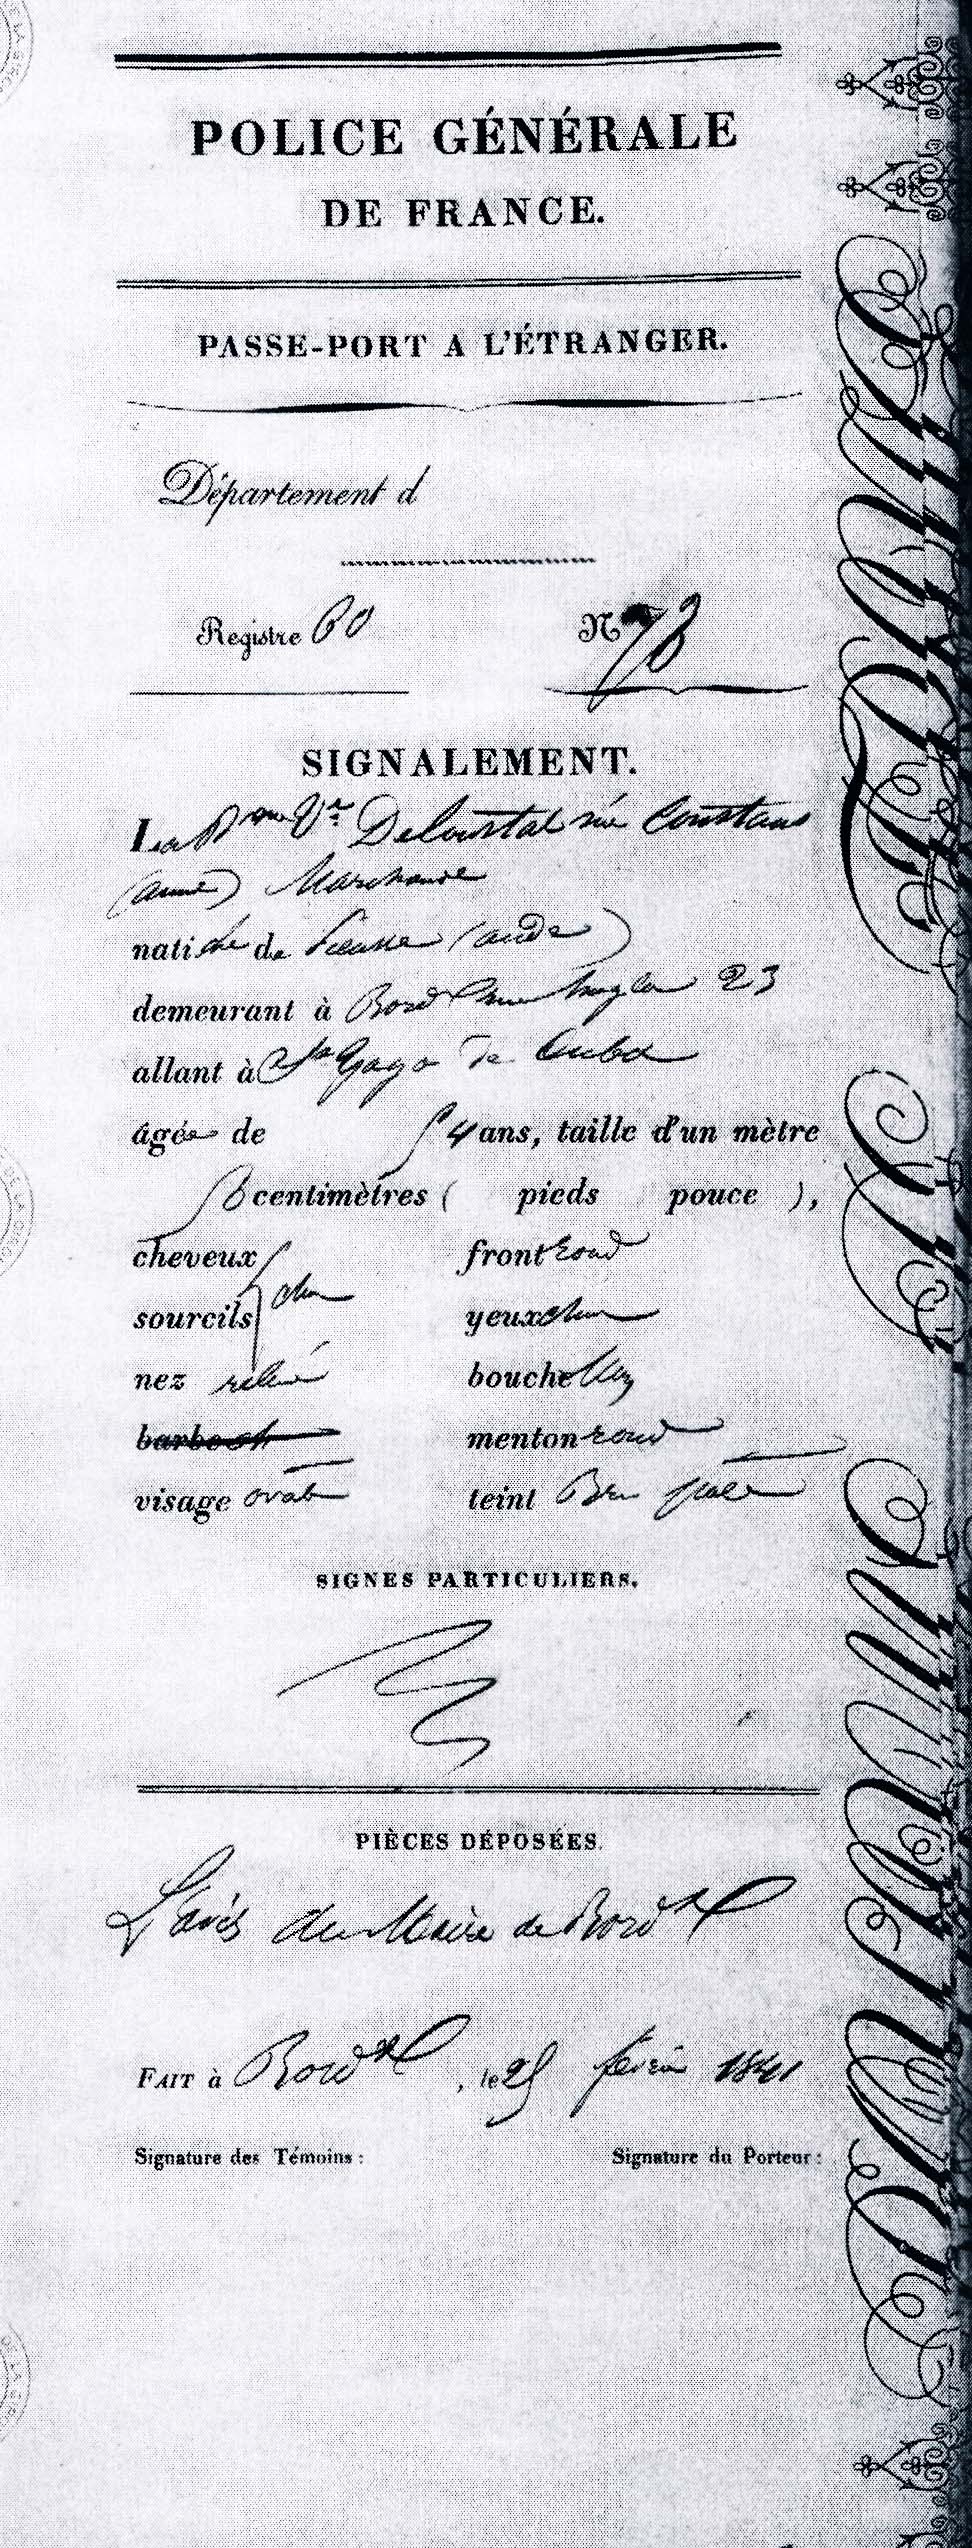 POLICE GÉNÉRALE
DE FRANCE.
PASSE-PORT A L'ÉTRANGER.
Département d
Registre 60 N° 73
SIGNALEMENT.
La Dme Ve Deloustal née Constans
(anne) Marchande
native de (aude)
demeurant à Bordx rue 23
allant à St Yago de Cuba
âgée de 54 ans, taille d'un mètre
centimètres ( pieds pouce ),
cheveux front rond
sourcils } chn yeux chn
nez relevé bouche moy
barbe
menton rond
visage ovale teint Brun pale
SIGNES PARTICULIERS.
PIÈCES DÉPOSÉES.
L'avis du Maire de Bordx
FAIT à Bordx, le 25 février 1841
Signature des Témoins : Signature du Porteur :